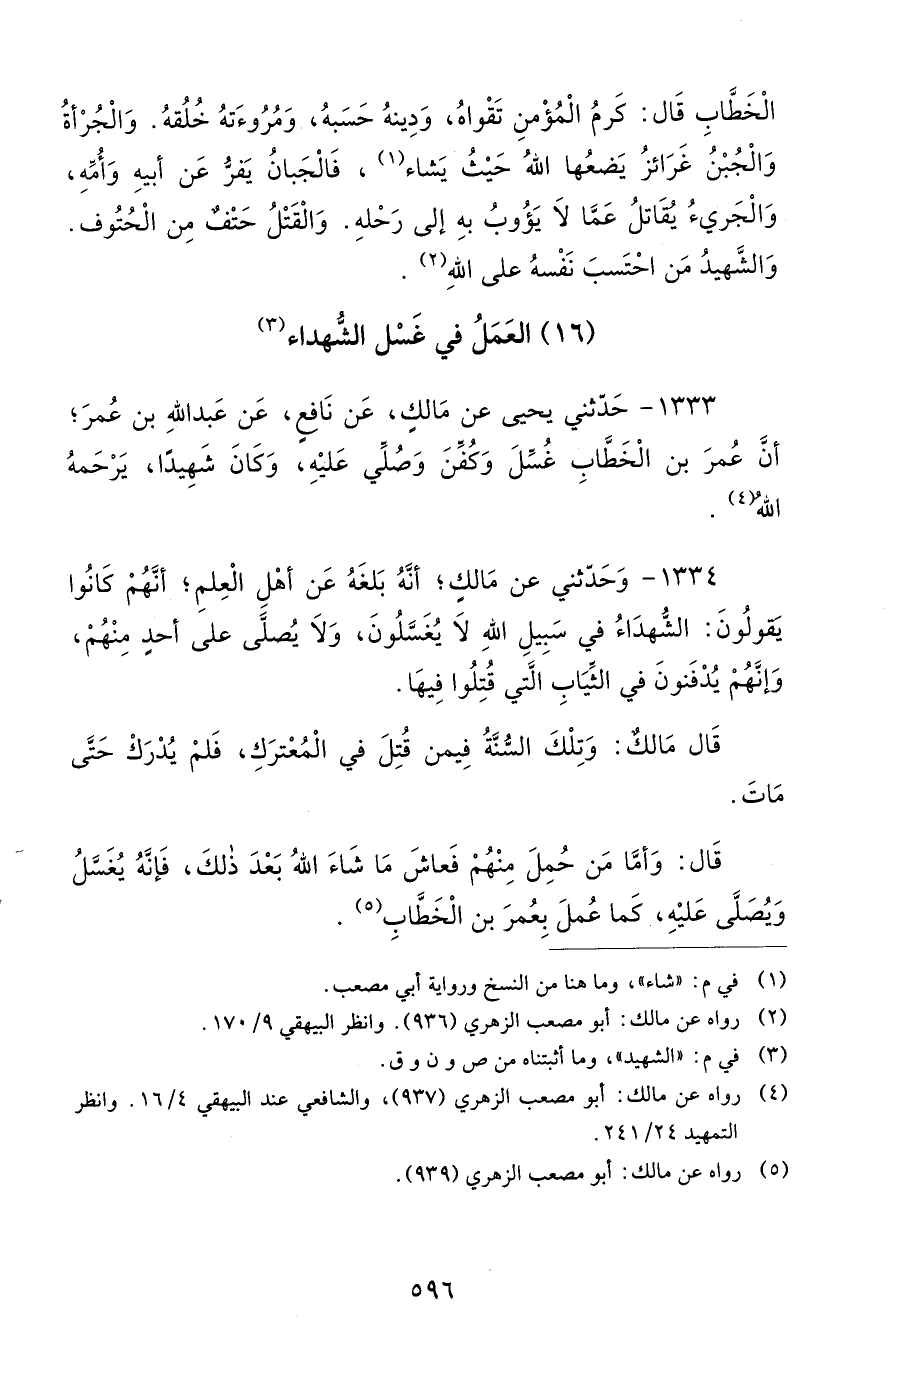 الْخَطَّابِ قَال: كَرمُ الْمُؤْمنِ تَقْواهُ، وَدِينهُ حَسَبهُ، وَمُرُوءَتهُ خُلُقهُ. وَالْجُرْأةُ
وَالْجُبْنُ غَرَائزُ يَضعُها اللهُ حَيْثُ يَشاء(١)، فَالْجَبانُ يَفرُّ عَن أبيهِ وَأُمِّهِ،
وَالْجَريءُ يُقَاتلُ عَمَّا لاَ يَؤُوبُ بهِ إلى رَحْلهِ. وَالْقَتْلُ حَتْفٌ مِن الْحُتُوف.
وَالشَّهيدُ مَن احْتَسبَ نَفْسهُ على اللهِ(٢).
(١٦) العَمَلُ في غَسْل الشُّهداء(٣)
١٣٣٣- حَدّثني يحيى عن مَالكٍ، عَن نَافعٍ، عَن عَبداللهِ بن عُمرَ؛
أنَّ عُمرَ بن الْخَطَّابِ غُسِّلَ وَكُفِّنَ وَصُلِّي عَليْهِ، وَكَانَ شَهِيدًا، يَرْحَمهُ
اللهُ(٤).
١٣٣٤- وَحَدّثني عن مَالكٍ؛ أنَّهُ بَلغَهُ عَن أهْلِ الْعِلمِ؛ أنَّهُمْ كَانُوا
يَقولُونَ: الشُّهدَاءُ في سَبِيلِ اللهِ لاَ يُغَسَّلُونَ، وَلاَ يُصلَّى على أحدٍ مِنْهُمْ،
وَإنَّهُمْ يُدْفَنونَ في الثِّيَابِ الَّتي قُتِلُوا فِيهَا.
قَال مَالكٌ: وَتِلْكَ السُّنَّةُ فِيمن قُتِلَ في الْمُعْتركِ، فَلمْ يُدْرَكْ حَتَّى
مَاتَ.
قَال: وَأمَّا مَن حُمِلَ مِنْهُمْ فَعاشَ مَا شَاءَ اللهُ بَعْدَ ذٰلكَ، فَإنَّهُ يُغَسَّلُ
وَيُصَلَّى عَليْهِ، كَما عُملَ بِعُمرَ بن الْخَطَّابِ(٥).
(١) في م: «شاء»، وما هنا من النسخ ورواية أبي مصعب.
(٢) رواه عن مالك: أبو مصعب الزهري (٩٣٦). وانظر البيهقي ٩/ ١٧٠.
(٣) في م: «الشهيد»، وما أثبتناه من ص و ن و ق.
(٤) رواه عن مالك: أبو مصعب الزهري (٩٣٧)، والشافعي عند البيهقي ٤/ ١٦. وانظر
التمهيد ٢٤/ ٢٤١.
(٥) رواه عن مالك: أبو مصعب الزهري (٩٣٩).
٥٩٦